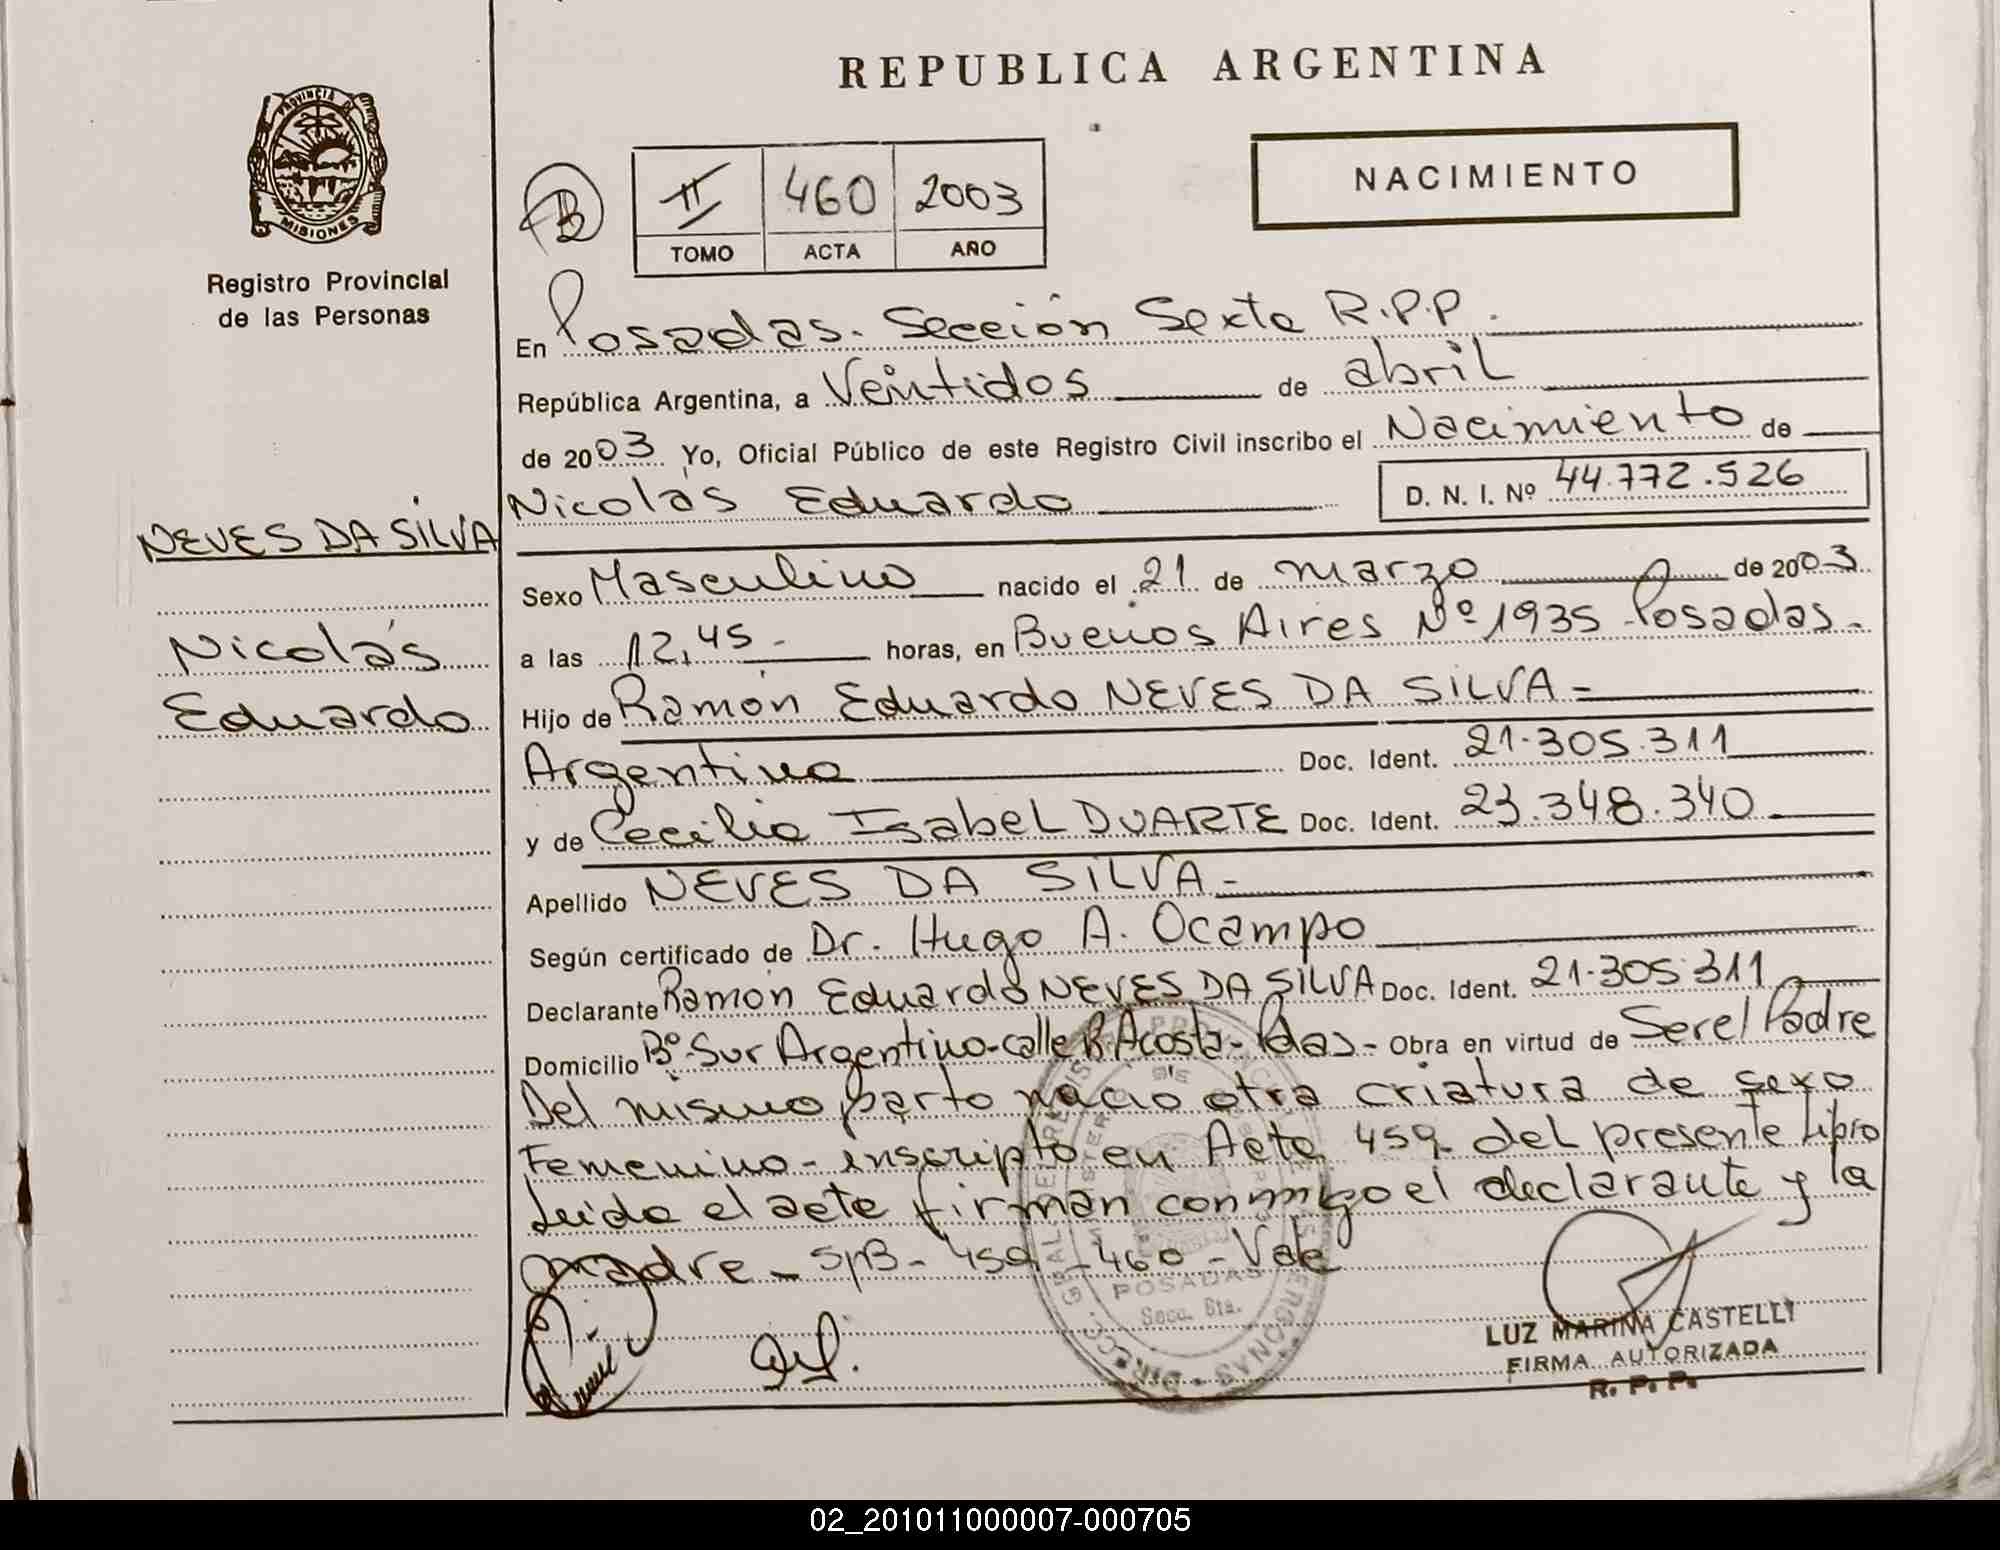 REPUBLICA ARGENTINA
PROVINCIA DE
MISIONES
Registro Provincial
de las Personas
NACIMIENTO
B
II 460 2003
TOMO ACTA AÑO
En Posadas. Sección Sexta R.P.P.
República Argentina, a Veintidos de abril
de 2003 Yo, Oficial Público de este Registro Civil inscribo el Nacimiento de
NEVES DA SILVA
Nicolás
Eduardo
Nicolás Eduardo D. N. I. Nº 44.772.526
Sexo Masculino nacido el 21 de marzo de 2003
a las 12,45 - horas, en Buenos Aires Nº 1935 Posadas.-
Hijo de Ramón Eduardo NEVES DA SILVA -
Argentino Doc. Ident. 21.305.311
y de Cecilia Isabel DUARTE Doc. Ident. 23.348.340
Apellido NEVES DA SILVA -
Según certificado de Dr. Hugo A. Ocampo
Declarante Ramón Eduardo NEVES DA SILVA Doc. Ident. 21.305.311
Domicilio Bº Sur Argentino - calle B. Acosta - Pdas - Obra en virtud de Ser el Padre
Del mismo parto nacio otra criatura de sexo
Femenino - inscripto en Acta 459 del presente Libro
Leida el acta firman conmigo el declarante y la
madre - S/B - 459 - 460 - Vale
POSADAS
Secc. 6ta.
LUZ MARINA CASTELLI
FIRMA AUTORIZADA
R. P. P.
02_201011000007-000705